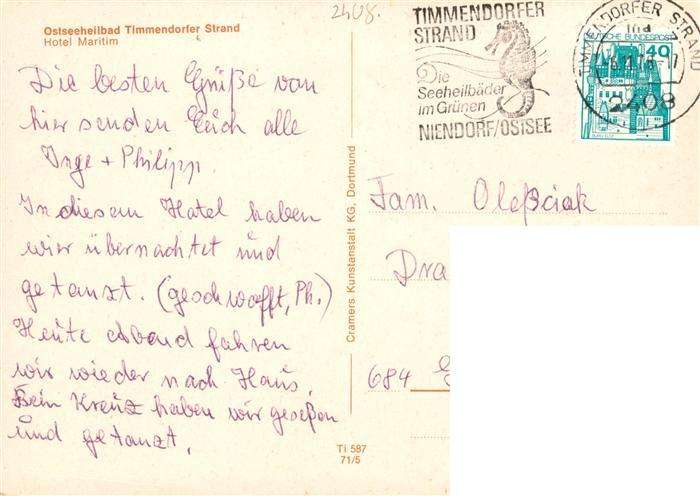 Ostseeheilbad Timmendorfer Strand
Hotel Maritim
Die besten Grüße von
hier senden Euch alle
Inge + Philipp.
In diesem Hotel haben
wir übernachtet und
getanzt. (geschwofft, Ph.)
Heute abend fahren
wir wieder nach Haus.
Beim Kreuz haben wir gesessen
und getanzt.
Cramers Kunstanstalt KG, Dortmund
TI 587
71/5
2408.
TIMMENDORFER
STRAND
Die
Seeheilbäder
im Grünen
NIENDORF/OSTSEE
TIMMENDORFER STRAND
2408
DEUTSCHE BUNDESPOST
40
Fam. Oleßciak
Dra
684